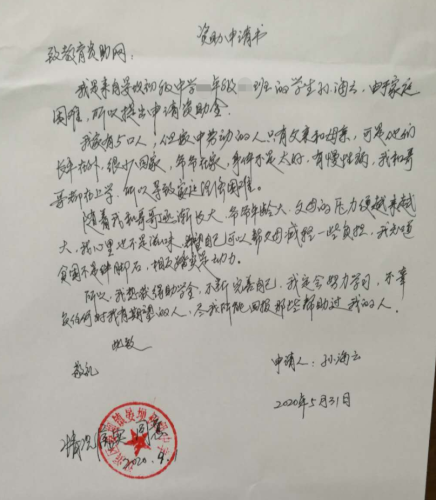 资助申请书
致教育资助网:
我是来自寻收初级中学 年级 班的学生孙海云,由于家庭
困难,所以提出申请资助金。
我家有5口人,但家中劳动的人只有父亲和母亲,可是他们
长年在外,很少回家,爷爷在家,身体不是太好,有慢性病,我和哥
哥都在上学,所以导致家庭经济困难。
随着我和哥哥逐渐长大,爷爷年龄大,父母的压力便越来越
大,我心里也不是滋味,希望自己可以帮父母减轻一些负担,我知道
贫困不是绊脚石,相反是动力。
所以,我想获得助学金,不断完善自己,我定会努力学习,不辜
负任何对我有期望的人,尽我所能回报那些帮助过我的人。
此致
敬礼
申请人:孙海云
2020年5月31日
情况属实 同意
2020.